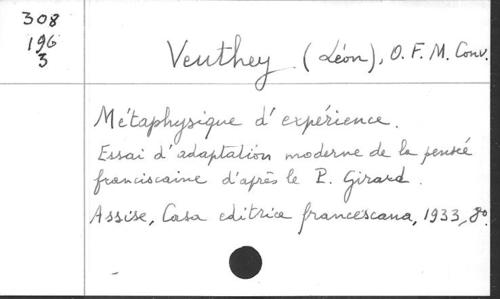 308
196
3
Veuthey (Léon), O. F. M. Conv.
Métaphysique d'expérience.
Essai d'adaptation moderne de la pensée
franciscaine d'après le P. Girard.
Assise, Casa editrice francescana, 1933, 8º.